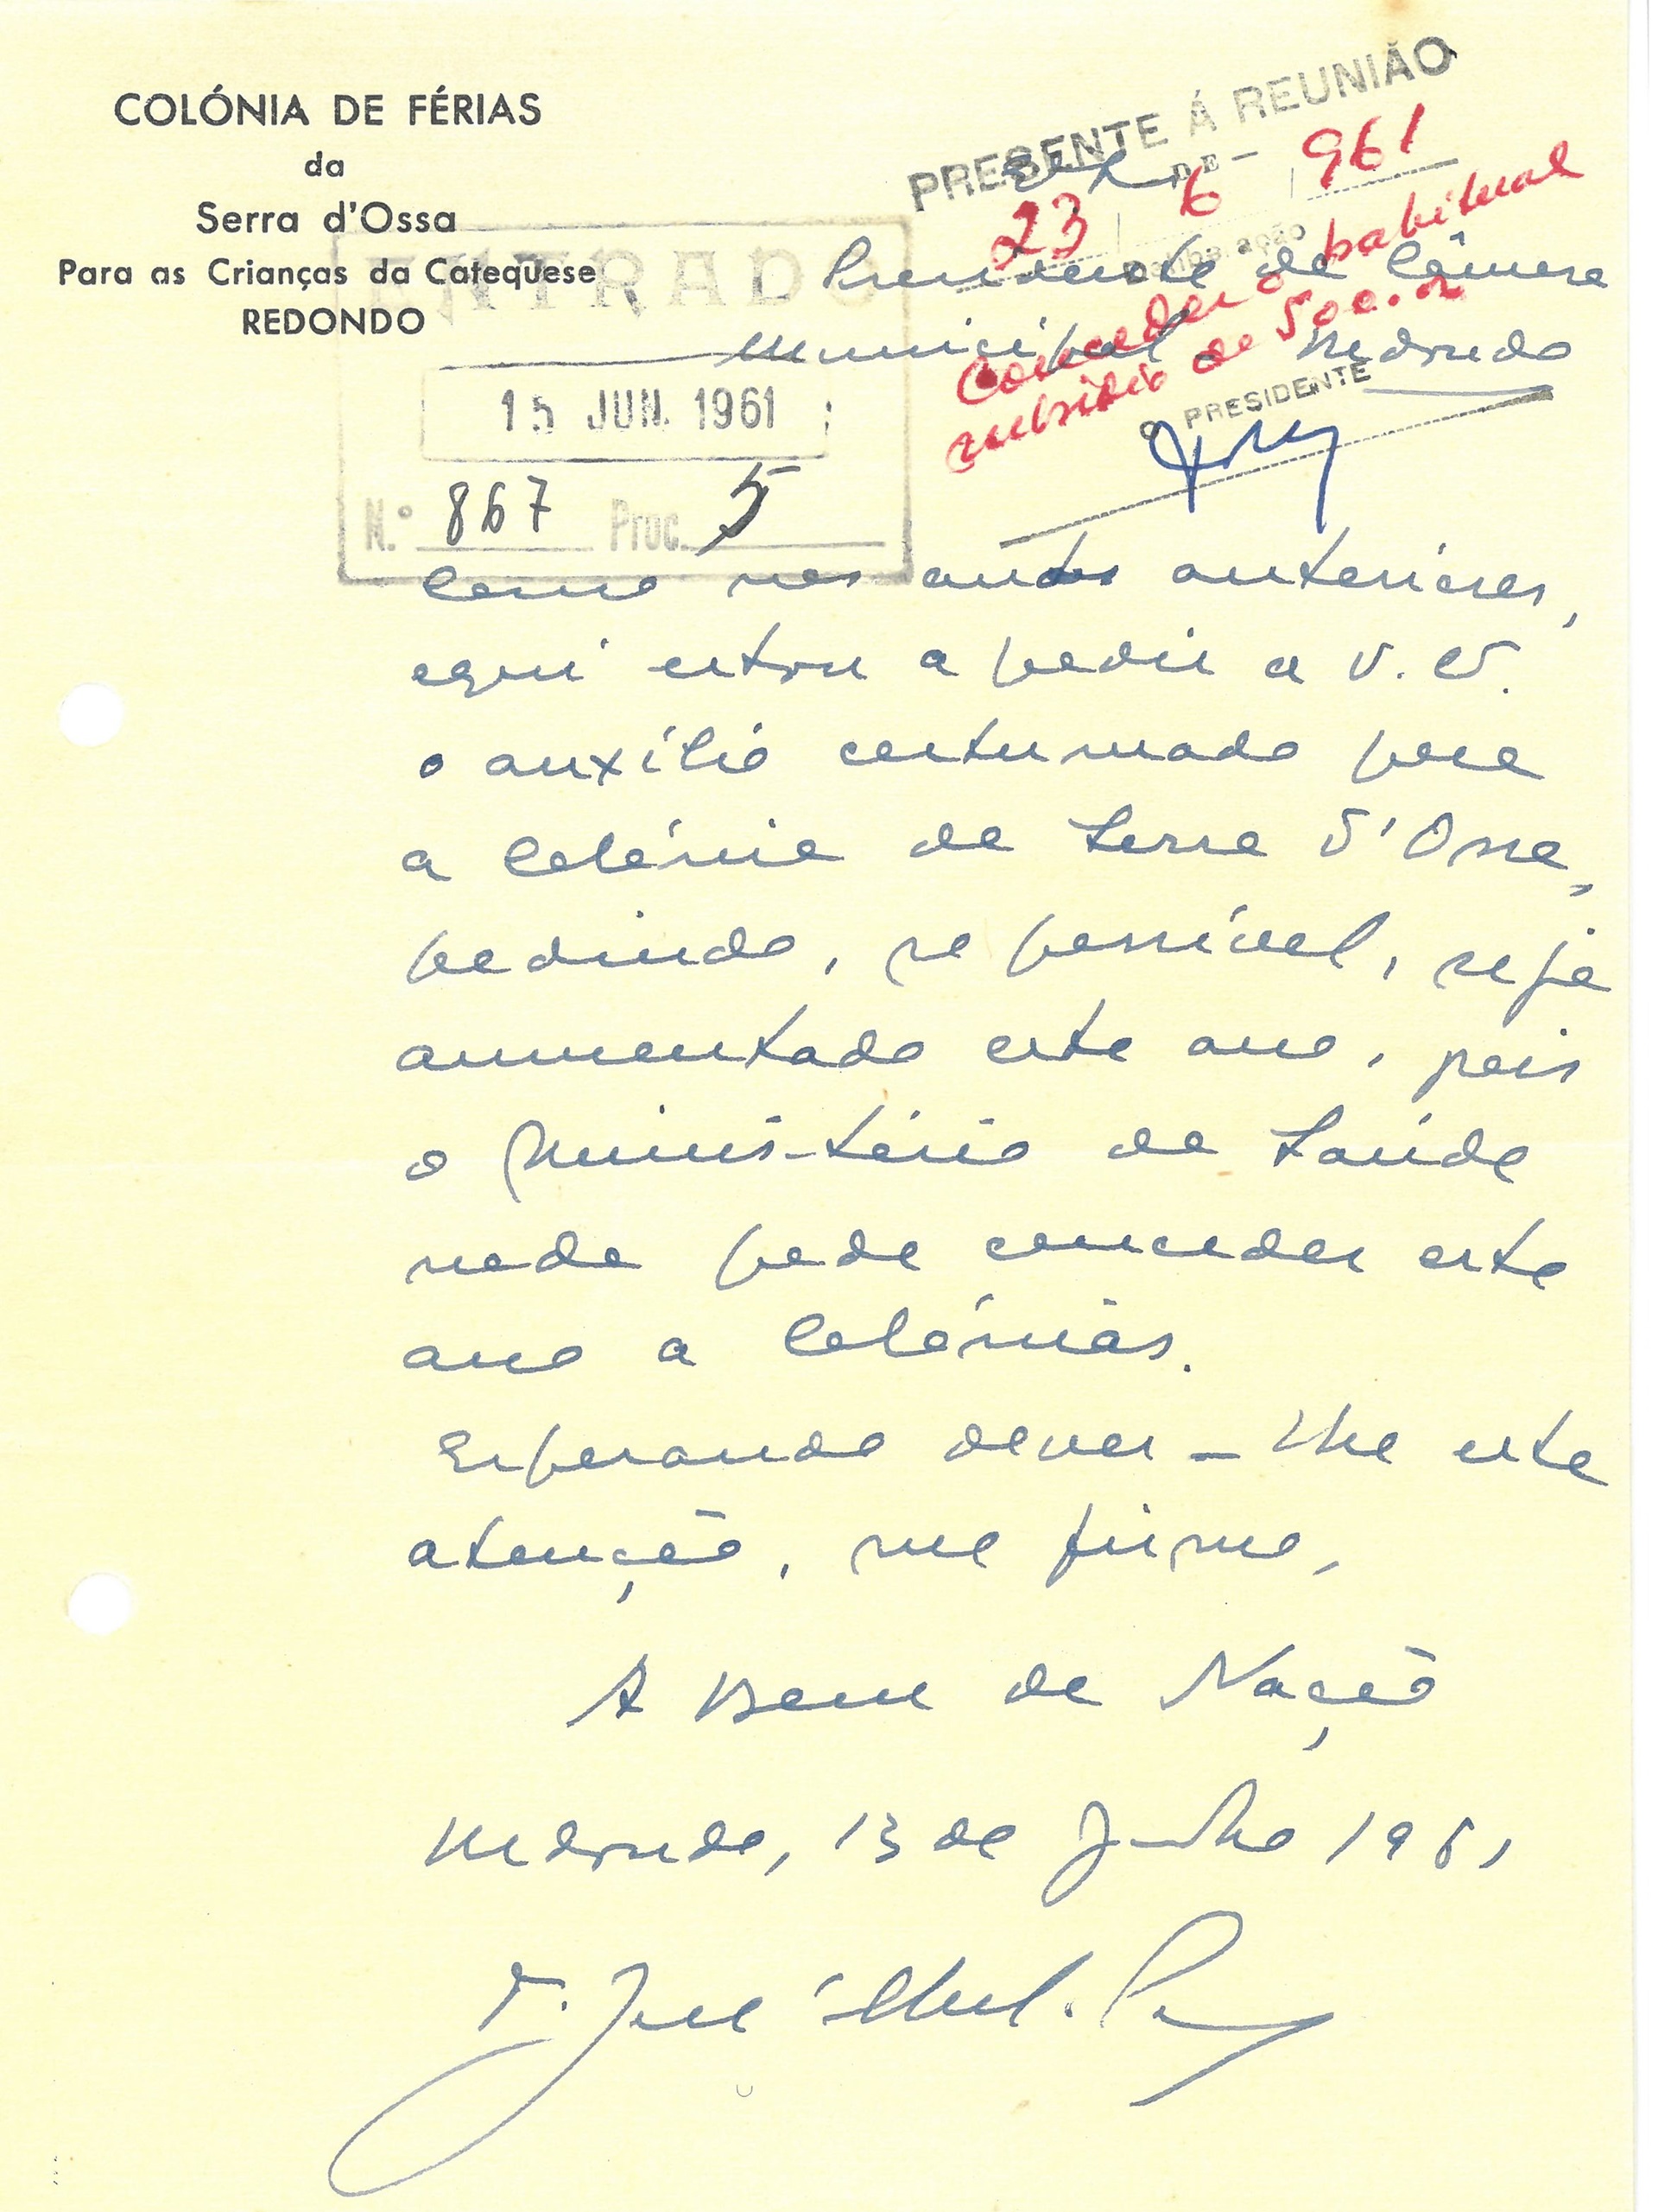 COLÓNIA DE FÉRIAS
da
Serra d'Ossa
Para as Crianças da Catequese
REDONDO
PRESENTE Á REUNIÃO
DE
23 6 961
Conceder o habitual
subsídio de 500.00
O PRESIDENTE
ENTRADO
15 JUN. 1961
N.º 867 Proc. 5
Presidente da Câmara
Municipal Redondo
Como nos anos anteriores,
aqui estou a pedir a V. E.
o auxílio costumado para
a Colónia da Serra d'Ossa,
pedindo, se possível, seja
aumentado este ano, pois
o Ministério da Saúde
nada pode conceder este
ano a Colónias.
Esperando dever-lhe esta
atenção, me firmo,
A Bem da Nação
Redondo, 13 de Junho 1961
P. José